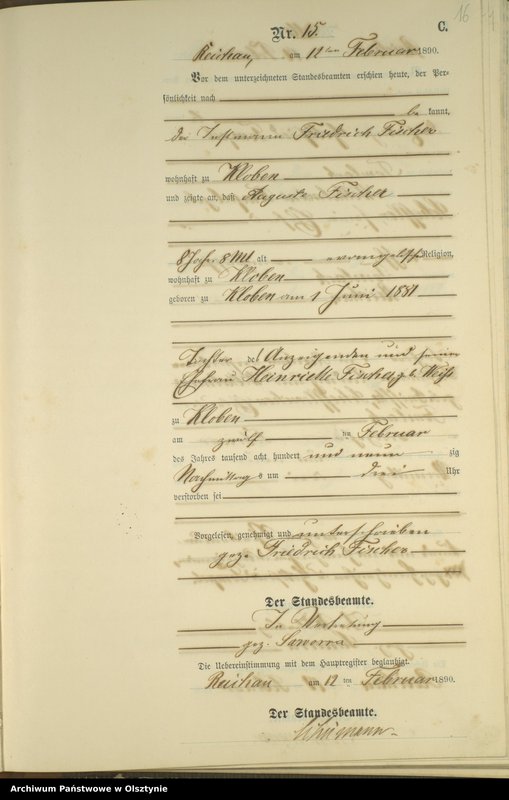 16
Nr. 15.
C.
Reichau, am 12ten Februar 1890.
Vor dem unterzeichneten Standesbeamten erschien heute, der Per-
sönlichkeit nach
be kannt,
der Instmann Friedrich Fischer
wohnhaft zu Kloben
und zeigte an, daß Auguste Fischer
8 Jahr 8 Mt alt evangelischer Religion,
wohnhaft zu Kloben
geboren zu Kloben am 1 Juni 1881
Tochter des Anzeigenden und seiner
Ehefrau Henriette Fischer geb. Weiß
zu Kloben
am zwölf ten Februar
des Jahres tausend acht hundert und neun zig
Nachmittags um drei Uhr
verstorben sei
Vorgelesen, genehmigt und unterschrieben
gez. Friedrich Fischer
Der Standesbeamte.
In Vertretung
gez. Saworra
Die Uebereinstimmung mit dem Hauptregister beglaubigt.
Reichau am 12 ten Februar 1890.
Der Standesbeamte.
Archiwum Państwowe w Olsztynie